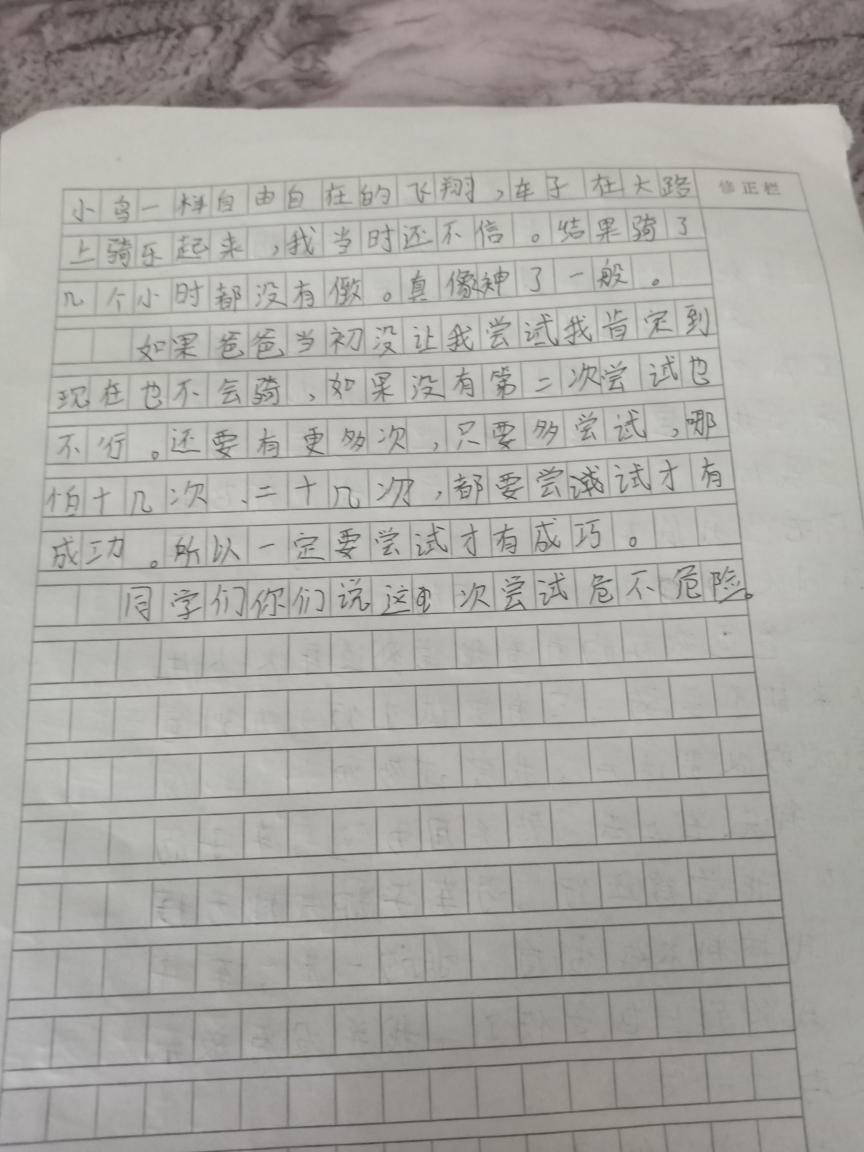 小鸟一样自由自在的飞翔，车子在大路
修正栏
上骑乐起来，我当时还不信。结果骑了
几个小时都没有倒。真像神了一般。
如果爸爸当初没让我尝试我肯定到
现在也不会骑，如果没有第二次尝试也
不行。还要有更多次，只要多尝试，哪
怕十几次、二十几次，都要尝试才有
成功。所以一定要尝试才有成巧。
同学们你们说这次尝试危不危险。